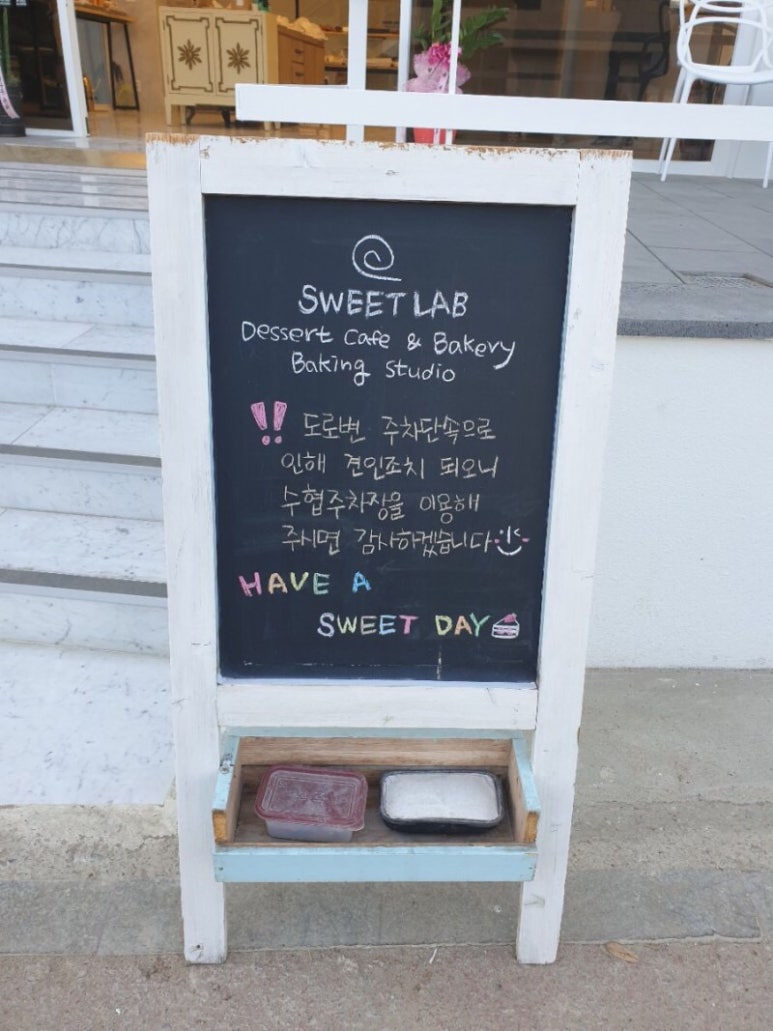 SWEET LAB
Dessert Cafe & Bakery
Baking Studio
!! 도로변 주차단속으로
인해 견인조치 되오니
수협주차장을 이용해
주시면 감사하겠습니다
HAVE A
SWEET DAY